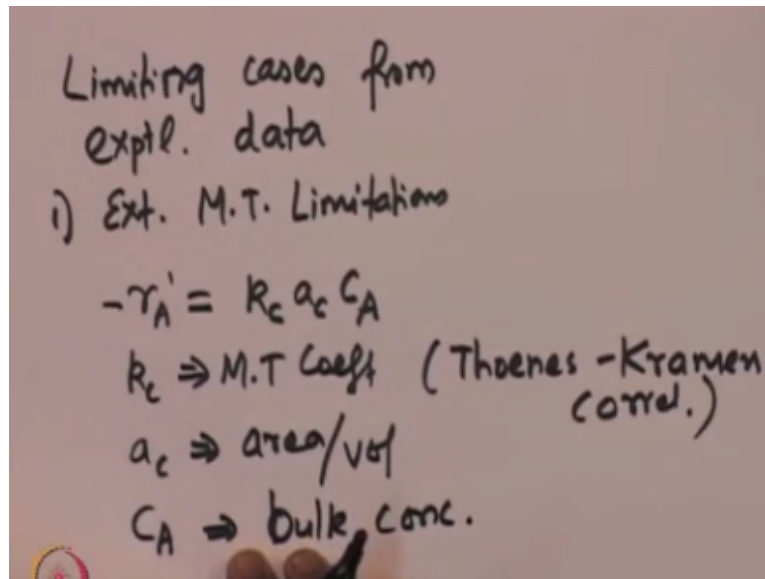 Limiting cases from
exptl. data
i) Ext. M.T. Limitations
-r_A' = k_c a_c C_A
k_c ⇒ M.T Coeff (Thoenes-Kramen
correl.)
a_c ⇒ area/vol
C_A ⇒ bulk conc.